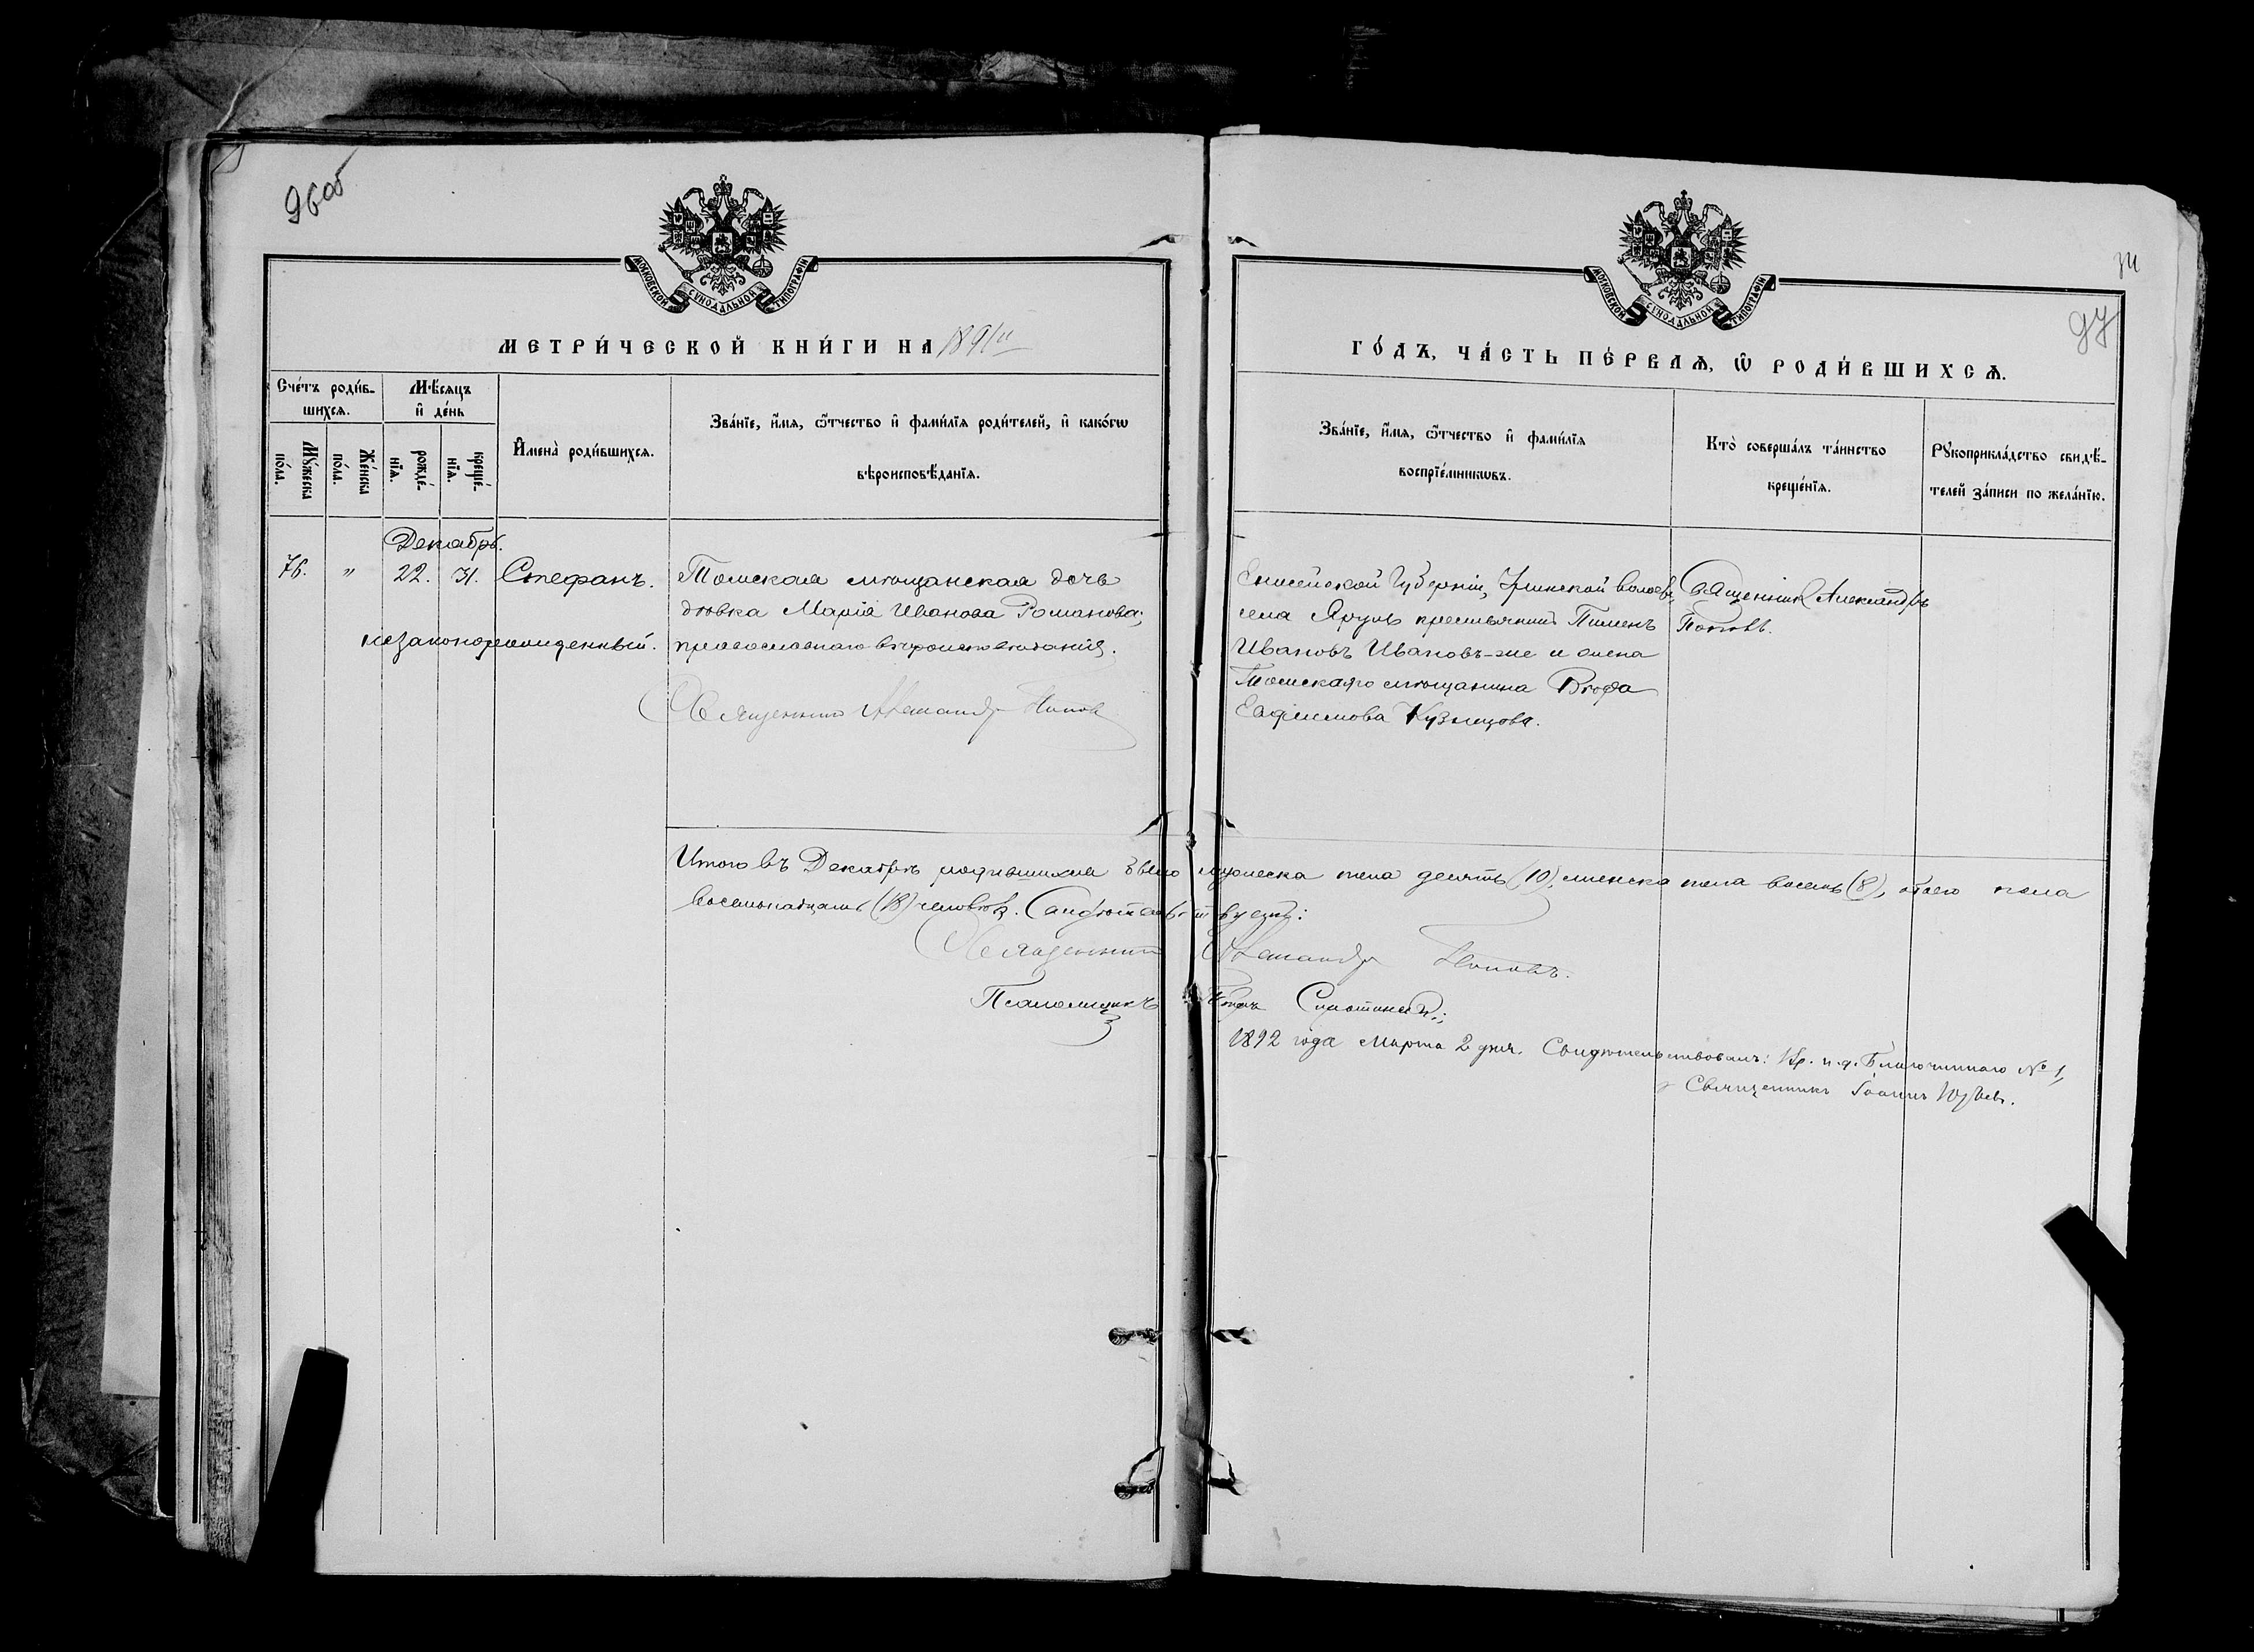 96об
МОСКОВСКОЙ СѴНОДАЛЬНОЙ ТИПОГРАФІИ
МЕТРИ́ЧЕСКОЙ КНИ́ГИ НА 1891й
Сче́тъ роди́в-
шихсѧ.
Мѣ́сѧцъ
и҆ де́нь
Мꙋ́жеска по́ла.
Же́нска по́ла.
рожде́нїѧ.
креще́нїѧ.
И҆мена̀ роди́вшихсѧ.
Зва́нїе, и҆́мѧ, ѻ҆́тчество и҆ фами́лїѧ роди́телей, и҆ како́гѡ
вѣроисповѣ́данїѧ.
Декабрь.
76. " 22. 31. Стефанъ.
незаконорожденный.
Томская мѣщанская дочь
дѣвка Марія Иванова Романова;
православнаго вѣроисповѣданія.
Священникъ Александръ Поповъ
34
97
МОСКОВСКОЙ СѴНОДАЛЬНОЙ ТИПОГРАФІИ
ГО́ДЪ, ЧА́СТЬ ПЕ́РВАѦ, Ѡ҆ РОДИ́ВШИХСѦ.
Зва́нїе, и҆́мѧ, ѻ҆́тчество и҆ фами́лїѧ
воспрїе́мникѡвъ.
Кто̀ соверша́лъ та́инство
креще́нїѧ.
Рꙋкоприкла́дство свидѣ́-
телей за́писи по жела́нїю.
Енисейской Губерніи, Уринской волости,
села Ярулъ крестьянинъ Пименъ
Ивановъ Ивановъ-же и жена
Томскаго мѣщанина
Евфимова Кузнецова.
Священникъ Александръ
Поповъ.
Итого въ Декабрѣ родившихся было мужеска пола десять (10), женска пола восемь (8), обоего пола
восемьнадцать (18) человѣкъ. Свидѣтельствуемъ:
Священникъ Александръ Поповъ.
Псаломщикъ
1892 года Марта 2 дня. Свидѣтельствовалъ: и. д. Благочиннаго № 1,
Священникъ Іоаннъ